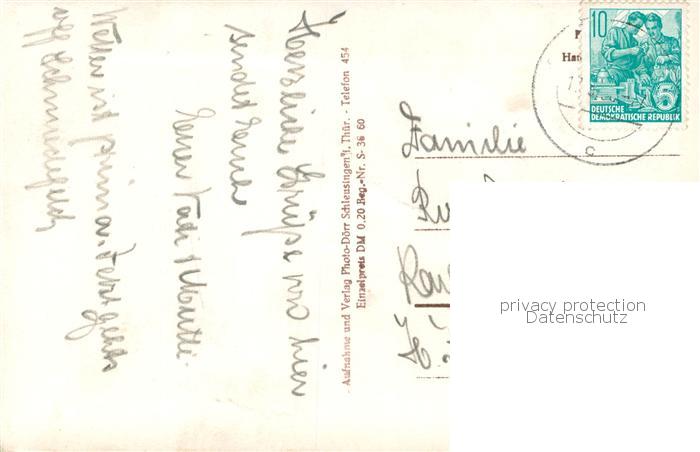 Herzliche Grüße von hier
sendet Euch
Euer Vati & Mutti.
Wetter ist prima. Jetzt gehts
auf
- Aufnahme und Verlag Photo-Dörr Schleusingen/i, Thür. - Telefon 454
Einzelpreis DM 0,20 Reg.-Nr. S- 36 60
10
DEUTSCHE
DEMOKRATISCHE REPUBLIK
5
c
Familie
privacy protection
Datenschutz